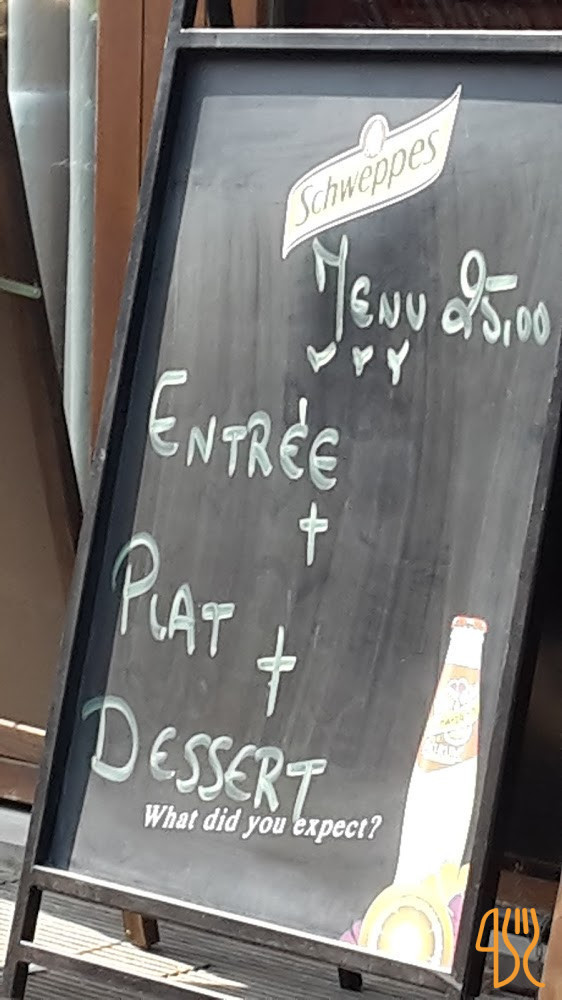 Schweppes
MENU 25,00
ENTRÉE
+
PLAT
+
DESSERT
What did you expect?